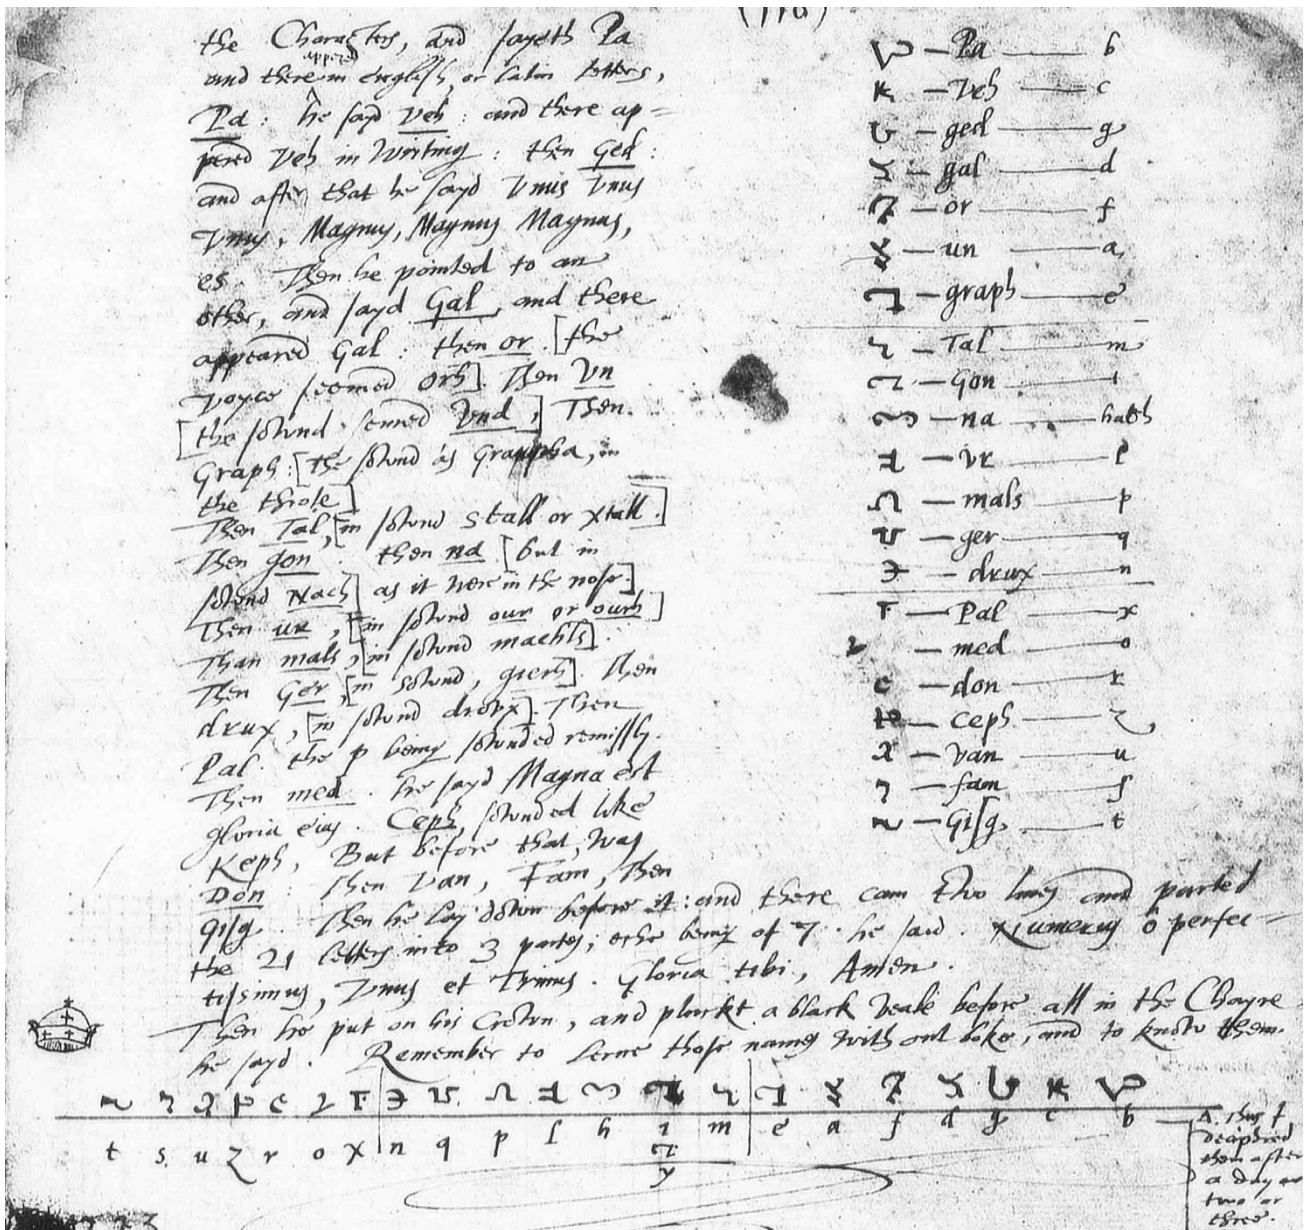 (116)
the Characters, and sayeth Pa
appered
and there in english, or latin letters,
Pa : he sayd Veh : and there ap=
pered Veh in Writing : then Ged :
and after that he sayd Vnus Vnus
Vnus, Magnus, Magnus Magnus,
es. Then he pointed to an
other, and sayd Gal, and there
appeared Gal : then or. [the
voyce seemed orh]. Then Vn
[the sownd semed Vnd,] Then
Graph : [the sownd as Grappha, in
the throte]
Then Tal, [in sownd stall or xtall.]
Then gon then na [but in
sownd Nach] as it were in the nose.]
Then ur, [in sownd our or ourh]
Than mals, [in sownd machls].
Then Ger, [in sownd, gierh]. Then
drux, [in sownd drovx]. Then
Pal the p being sownded remissly.
Then med. he sayd Magna est
gloria eius. Ceph, sownded like
Keph, But before that, was
Don : Then Van, Fam, Then
gisg. Then he lay down before it : and there cam two lines and parted
the 21 letters into 3 partes, eche being of 7. he said. Numerus ô perfec=
tissimus, Vnus et Trinus. Gloria tibi, Amen.
Then he put on his Crown, and pluckt a black veale before all in the Chayre.
he sayd. Remember to lerne those names without boke, and to know them.
Pa b
Veh c
ged g
gal d
or f
un a
graph e
Tal m
Gon i
na hath
vr l
mals p
ger q
drux n
Pal x
med o
don r
ceph z
van u
fam s
Gisg t
t s u z r o x n q p l h i m e a f d g c b
y
Δ. Thus I
deciphred
them after
a day or
two or
three.